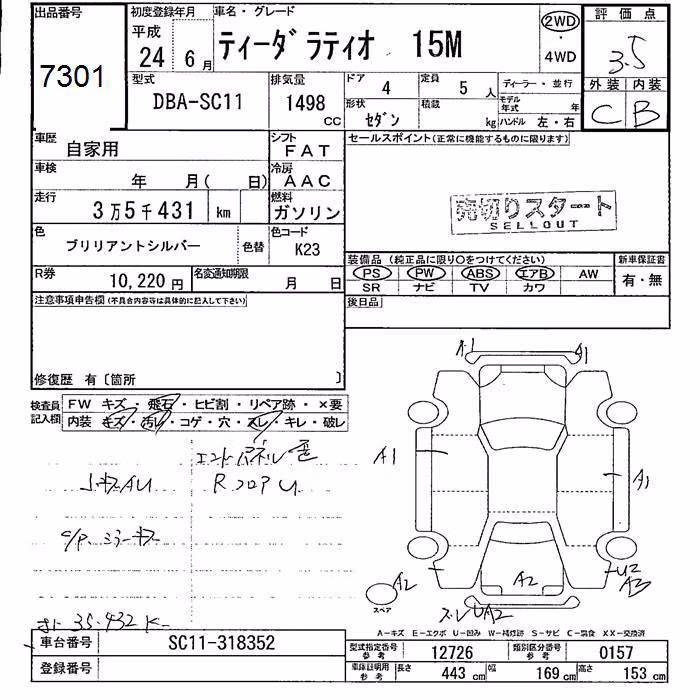 出品番号
7301
初度登録年月
平成
24 6月
車名・グレード
ティーダ ラティオ 15M
2WD
・
4WD
評価点
3.5
外装 内装
C B
型式
DBA-SC11
排気量
1498
CC
ドア
4
定員
5人
形状
セダン
積載
kg
ディーラー・並行
モデル年式 年
ハンドル 左・右
車歴
自家用
シフト
FAT
車検
年 月( 日)
冷房
AAC
走行
3万5千431 km
燃料
ガソリン
色
ブリリアントシルバー
色替
色コード
K23
R券
10,220円
名変通知期限
月 日
セールスポイント(正常に機能するものに限ります)
売切りスタート
SELLOUT
装備品(純正品に限り○をつけてください)
新車保証書
PS PW ABS エアB AW
有・無
SR ナビ TV カワ
後日品
注意事項申告欄(不具合内容等は具体的に記入して下さい)
修復歴 有〔箇所 〕
検査員
記入欄
FW キズ・飛石・ヒビ割・リペア跡・×要
内装 キズ・汚レ・コゲ・穴・スレ・キレ・破レ
A1
A1
A1
A2
A2
U2
A3
スペア
A-キズ E-エクボ U-凹み W-補修跡 S-サビ C-腐食 XX-交換済
車台番号
SC11-318352
登録番号
型式指定番号
参考
12726
類別区分番号
参考
0157
車庫証明用
参考
長さ
443 cm
幅
169 cm
高さ
153 cm